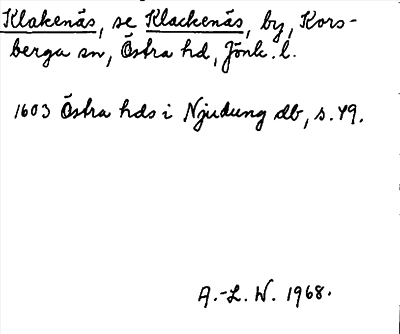 Klakenäs, se Klackenäs, by, Kors-
berga sn, Östra hd, Jönk. l.
1603 Östra hds i Njudung db, s. 49.
A.-L. W. 1968.